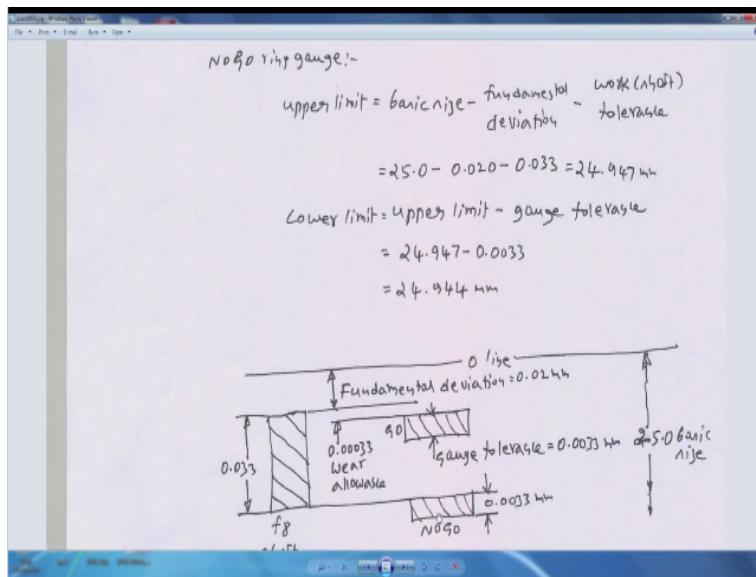 scan0009.jpg - Windows Photo Viewer
File Print E-mail Burn Open
NOGO ring gauge:-
upper limit = basic size - fundamental deviation - work (shaft) tolerance
= 25.0 - 0.020 - 0.033 = 24.947 mm
Lower limit = upper limit - gauge tolerance
= 24.947 - 0.0033
= 24.944 mm
0 line
Fundamental deviation = 0.02 mm
GO
0.033
0.00033 wear allowance
gauge tolerance = 0.0033 mm
25.0 basic size
0.0033 mm
NOGO
f8
shaft